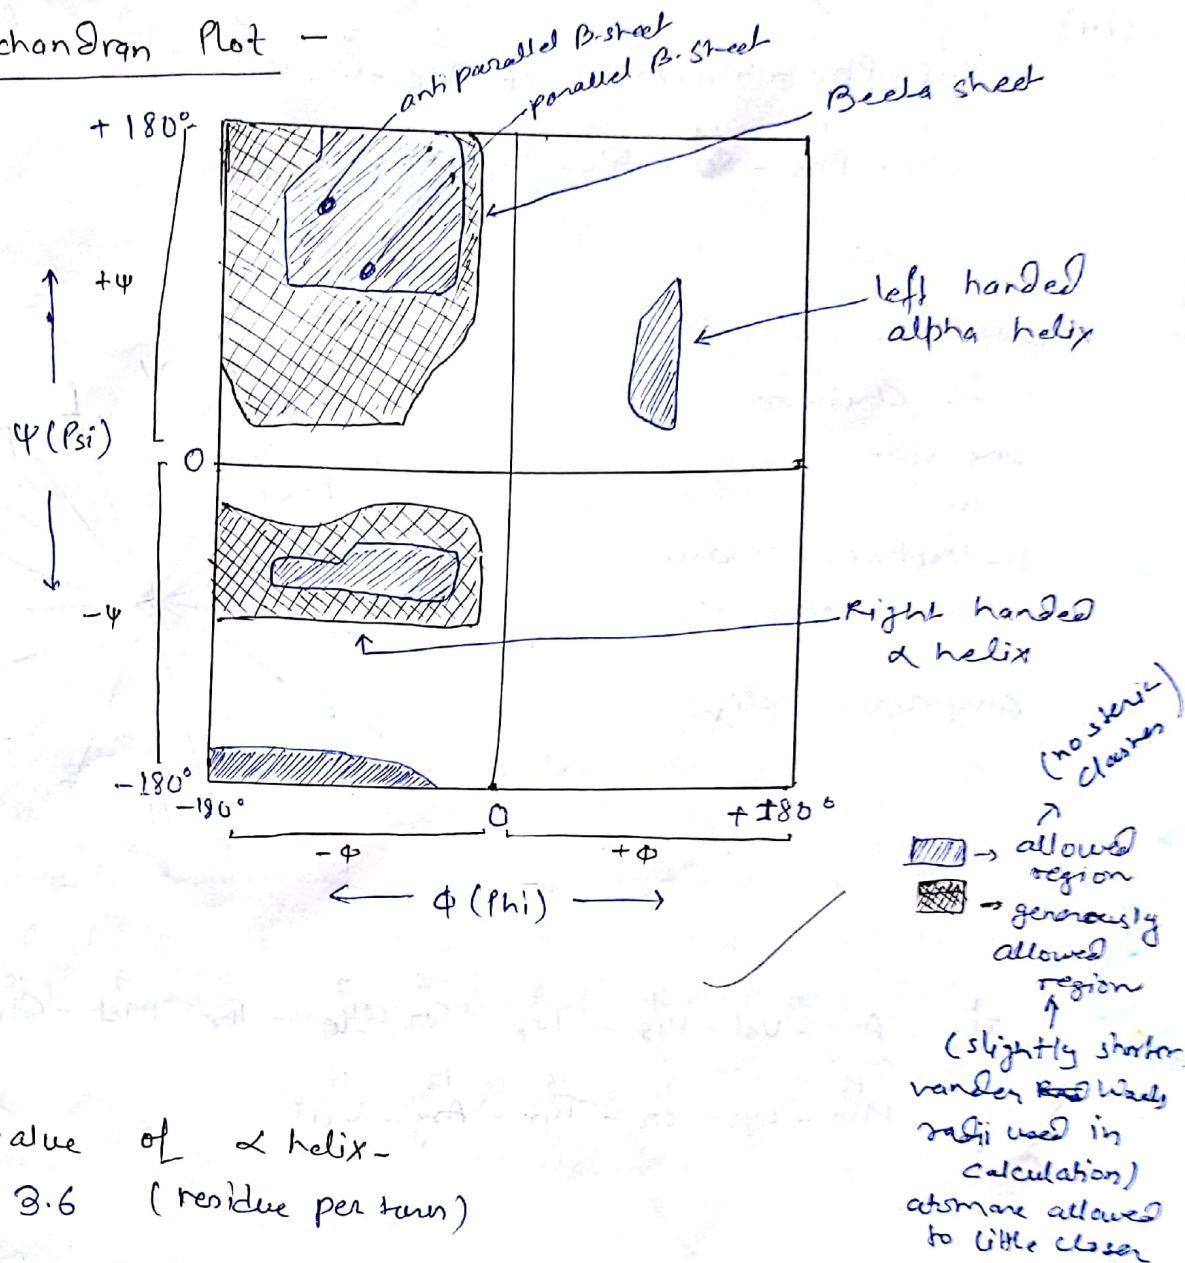 chandran Plot -
antiparallel β-sheet
parallel β-sheet
Beeta sheet
+180°
+ψ
left handed
alpha helix
ψ (Psi)
0
-ψ
Right handed
α helix
-180°
-190°
0
+180°
-Φ
+Φ
Φ (Phi)
(no steric
clashes
→ allowed
region
→ generously
allowed
region
(slightly shorter
vander Waals
radii used in
calculation)
allowed
to little closer
alue of α helix-
3.6 (residue per turn)